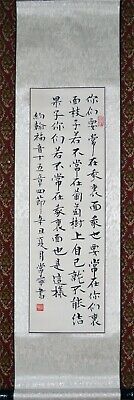 你们要常在我裏面我也要常在你们裏
面枝子若不常在葡萄樹上自己就不能结
果子你们若不常在我裏面也是這樣
约翰福音十五章四節 辛丑夏月 書